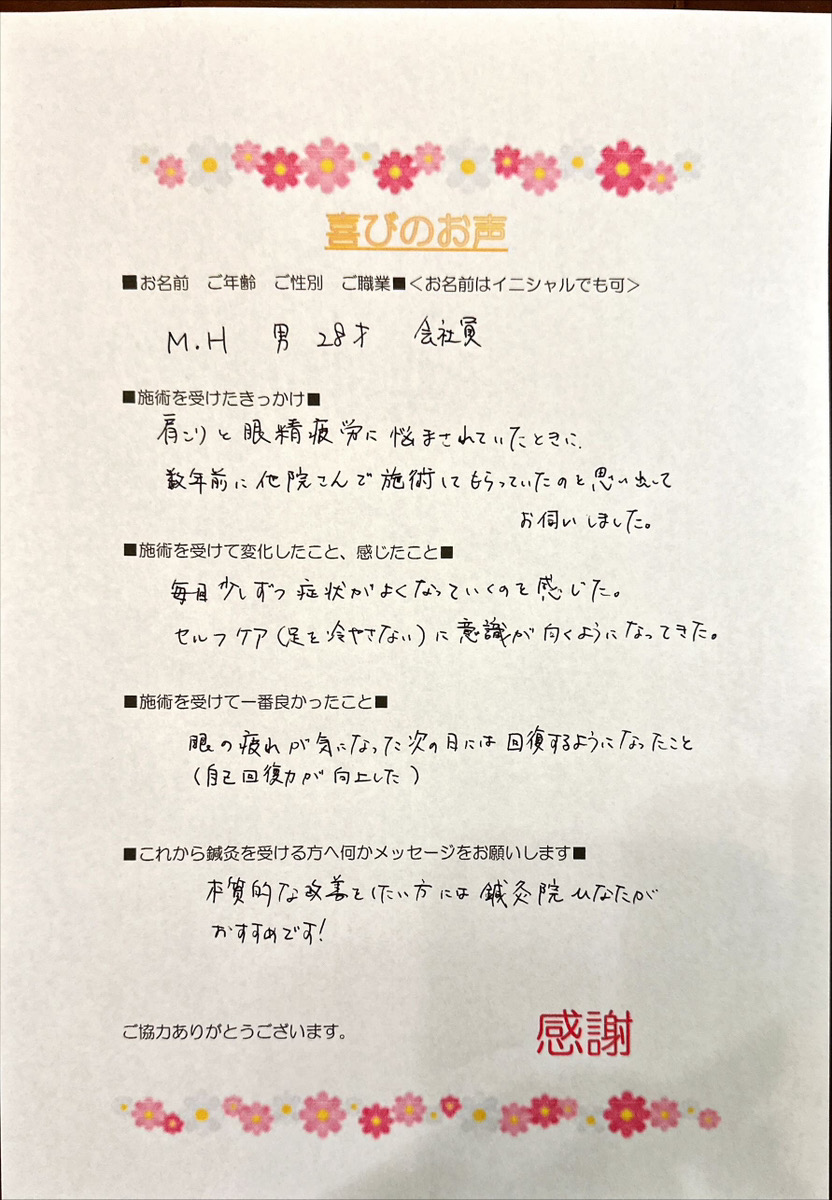 喜びのお声
■お名前 ご年齢 ご性別 ご職業■<お名前はイニシャルでも可>
M.H 男 28才 会社員
■施術を受けたきっかけ■
肩こりと眼精疲労に悩まされていたときに、
数年前に他院さんで施術してもらっていたのを思い出して
お伺いしました。
■施術を受けて変化したこと、感じたこと■
毎日少しずつ症状がよくなっていくのを感じた。
セルフケア(足を冷やさない)に意識が向くようになってきた。
■施術を受けて一番良かったこと■
眼の疲れが気になった次の日には回復するようになったこと
(自己回復力が向上した)
■これから鍼灸を受ける方へ何かメッセージをお願いします■
本質的な改善をしたい方には鍼灸院ひなたが
おすすめです!
ご協力ありがとうございます。
感謝